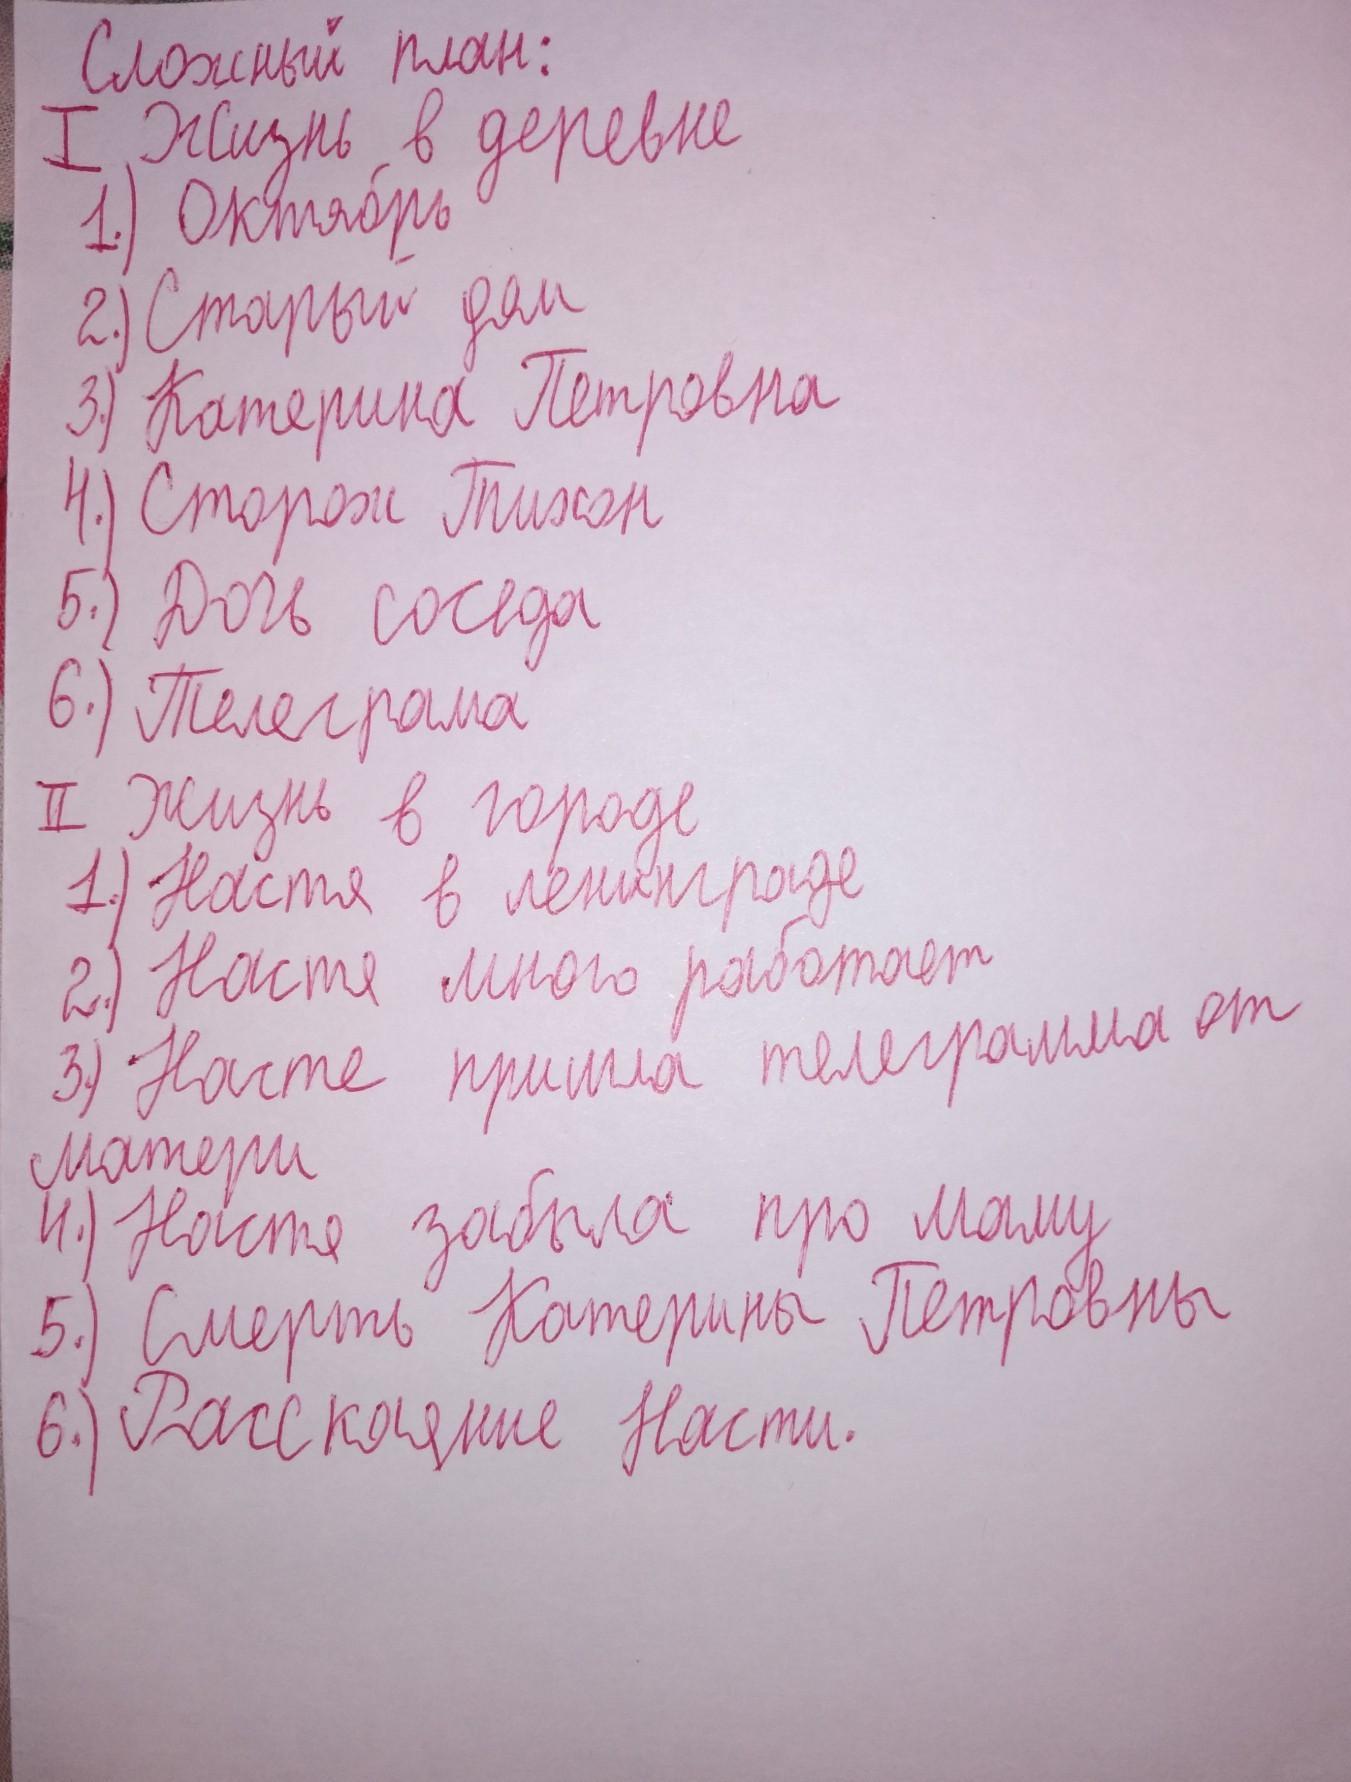 Сложный план:
I Жизнь в деревне
1.) Октябрь
2.) Старый дом
3.) Катерина Петровна
4.) Сторож Тихон
5.) Дочь соседа
6.) Телеграма
II Жизнь в городе
1.) Настя в ленинграде
2.) Настя много работает
3.) Насте пришла телеграмма от
матери
4.) Настя забыла про маму
5.) Смерть Катерины Петровны
6.) Расскаяние Насти.